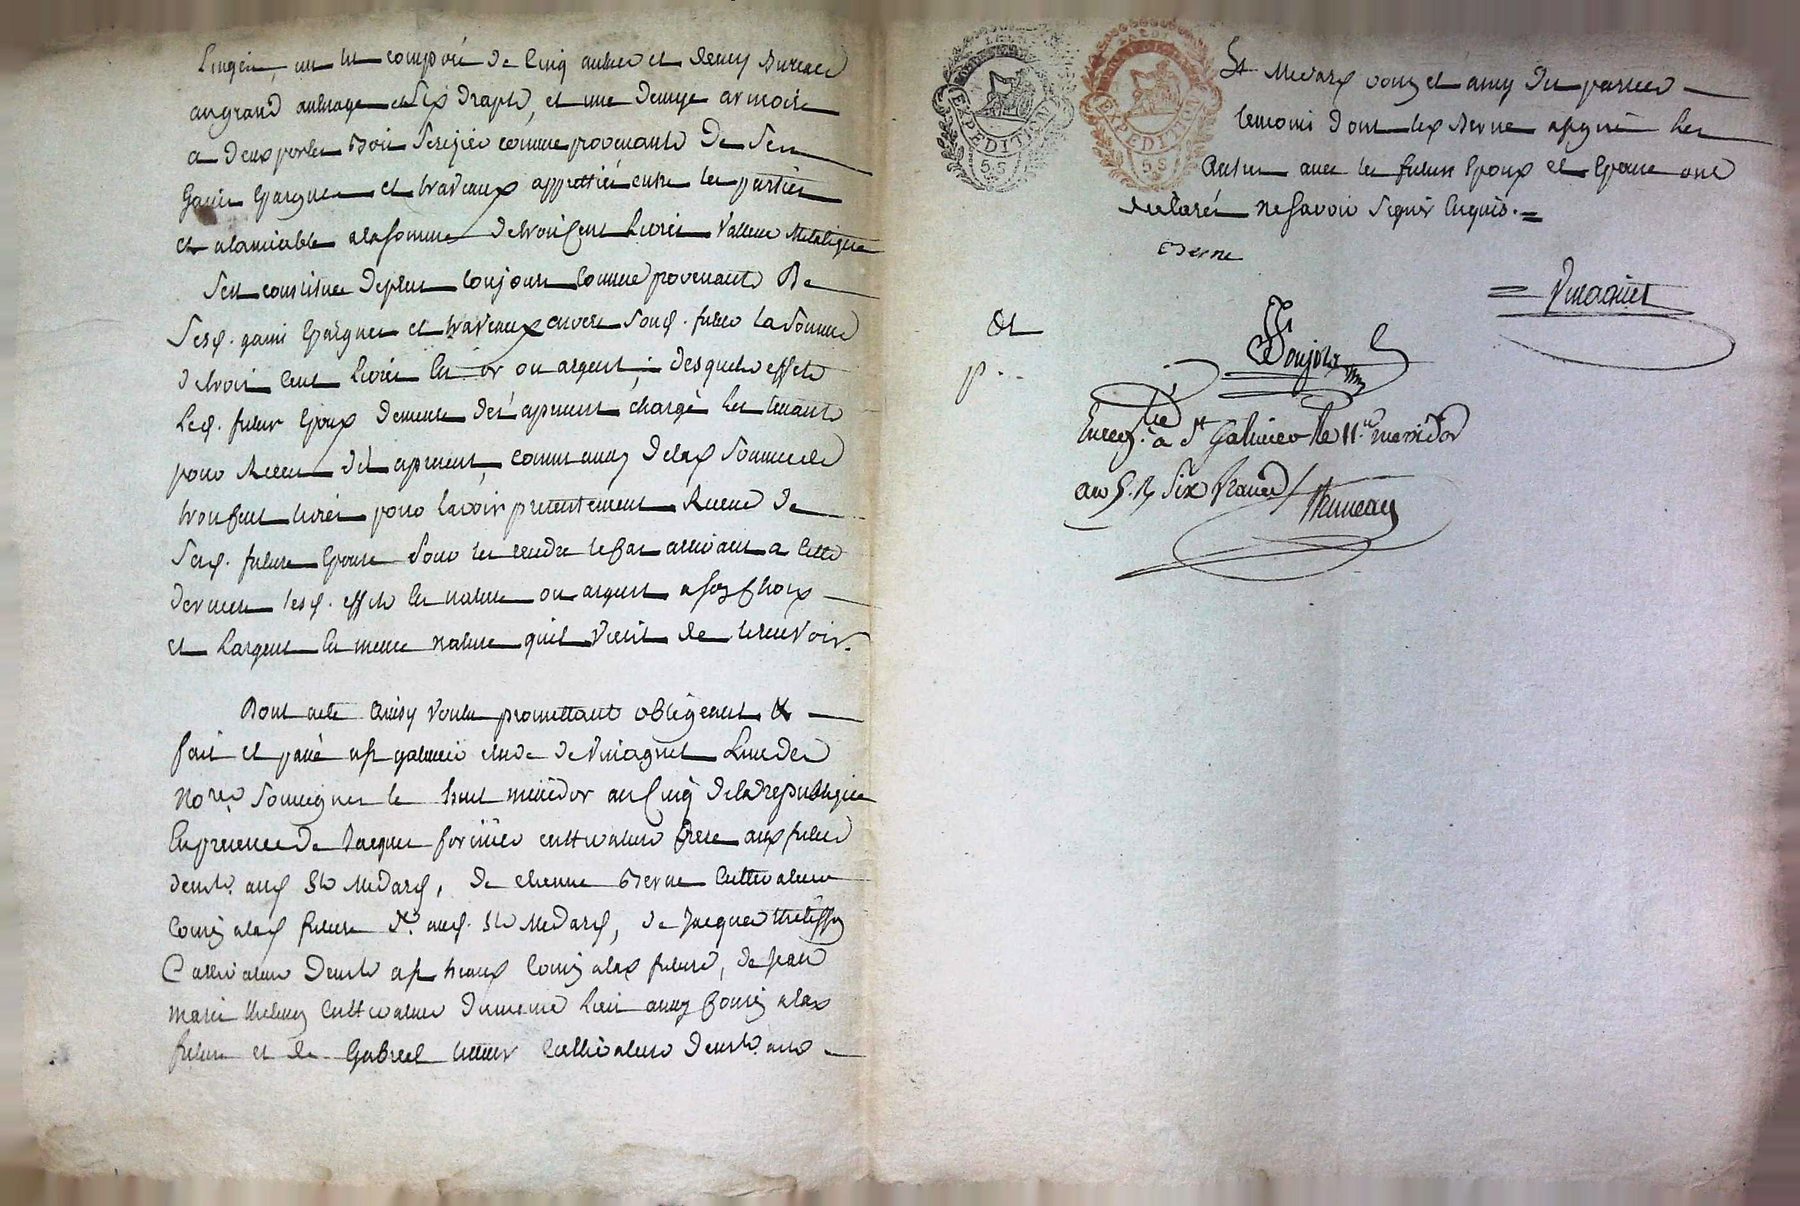 Lingere, un lit composé de Cinq aulnes et demy Bureau
au grand aulnage et Six draps, et une demye armoire
a deux portes Bois Serizier comme provenants De Ses
Gains Epargnes et travaux apprettiés entre les parties
et alamiable alasomme de trois Cent Livres Valleur Metalique
Sest constituee deplus toujours Comme provenants De
Sesd. gains Epargnes et travaux envers Sond. futur la Somme
de trois Cent Livres En or ou argent, desquels effets
Led. futur Epoux demeure des apresent chargé Les tenants
pour Receus des apresent, comme aussy de lad Somme de
trois Cent livres pour lavoir presentement Receue de
Sad. future Epouse Pour les rendre le Cas arrivant a Cette
derniere lesd. effets En nature ou argent a son Choix
et Largent En meme nature quil Vient de le recevoir.
Dont acte Ainsy Voulu promettant obligeant &
fait et passé a St galmier etude de Vinagnet Lun des
No.res Soussignes le huit messidor an Cinq de la Republique
En presence de Jacques forissier cultivateur frere aux futur
demt. aud St Medard, de etienne Berne Cultivateur
Cousin alad future dt. aud. St Medard, de Jacques
Cultivateur demt a St heaux Cousin alad future, de Jean
Marie cultivateur du meme Lieu aussy Cousin alad
future et de Gabriel Cultivateur demt. aud
St Medard Cousin et amy des parties
temoins dont led Berne a signé Les
Autres avec les futurs Epoux et Epouse ont
declarés ne Savoir Signer Enquis.
Berne
Vinagnet
&
p..
Enreg.tré à St Galmier le 11.e messidor
an 5. R Six francs
EXPEDITION
5 S
EXPEDITION
5 S